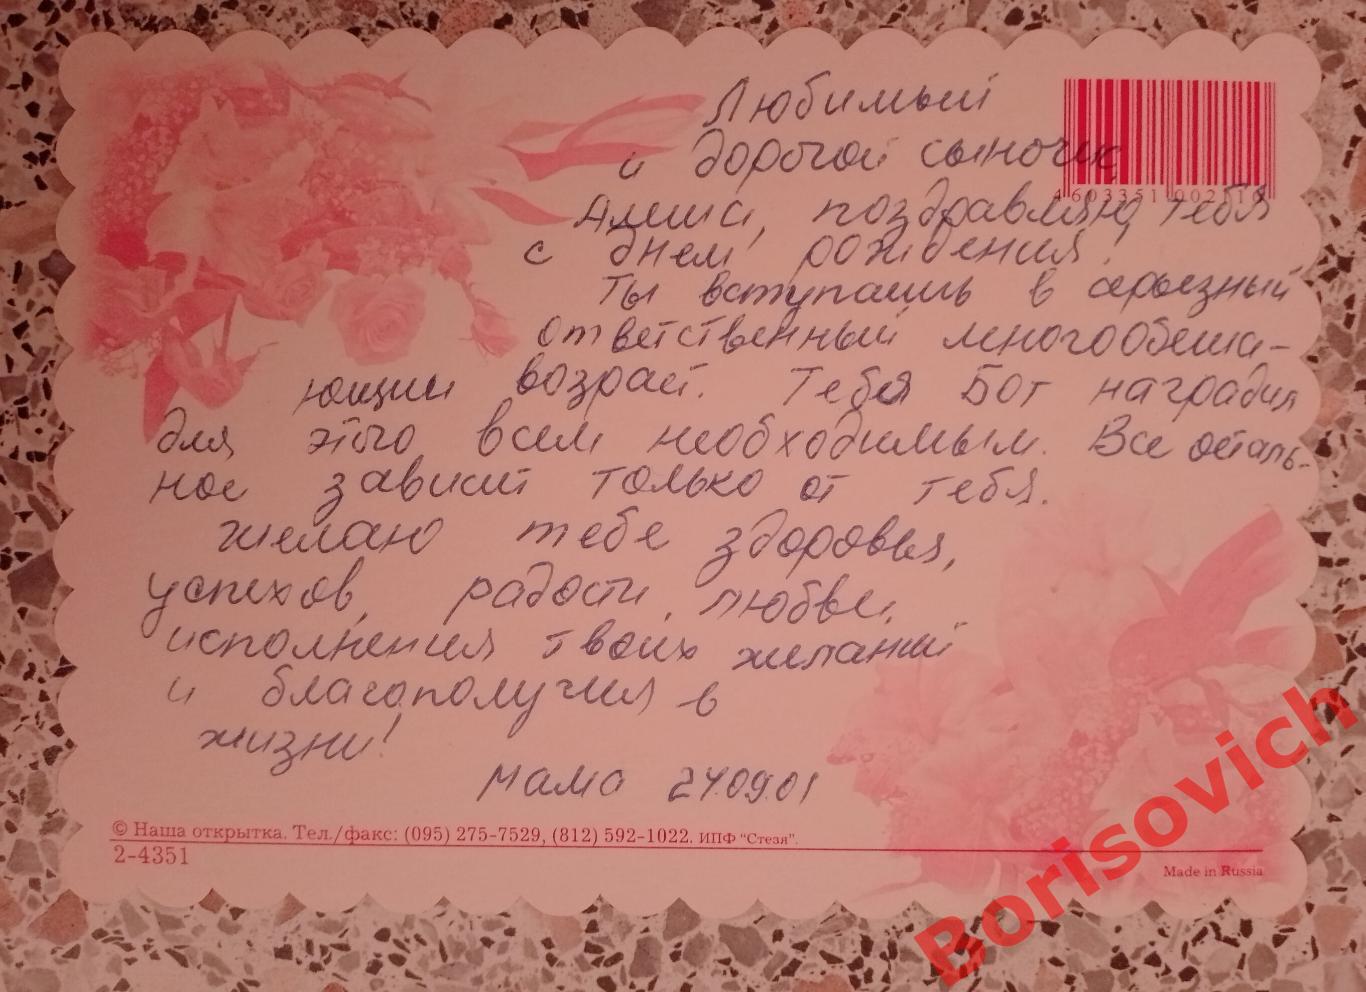 Любимый
и дорогой сыночик
Алеша, поздравляю тебя
с днем рождения!
Ты вступаешь в серьезный
ответственный многообеща-
ющий возраст. Тебя Бог наградил
для этого всем необходимым. Все осталь-
ное зависит только от тебя.
Желаю тебе здоровья,
успехов, радости, любви,
исполнения твоих желаний
и благополучия в
жизни!
Мама 24.09.01
4 603351 002110
© Наша открытка. Тел./факс: (095) 275-7529, (812) 592-1022. ИПФ "Стезя".
2-4351
Made in Russia
Borisovich